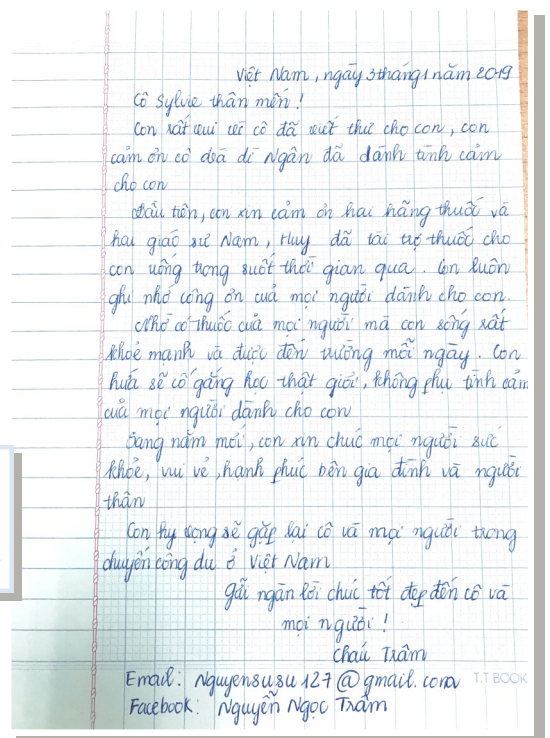 Việt Nam, ngày 3 tháng 1 năm 2019
Cô Sylvie thân mến!
Con rất vui vì cô đã viết thư cho con, con
cảm ơn cô và dì Ngân đã dành tình cảm
cho con
Đầu tiên, con xin cảm ơn hai hãng thuốc và
hai giáo sư Nam, Huy đã tài trợ thuốc cho
con uống trong suốt thời gian qua. Con luôn
ghi nhớ công ơn của mọi người dành cho con.
Nhờ có thuốc của mọi người mà con sống rất
khoẻ mạnh và được đến trường mỗi ngày. Con
hứa sẽ cố gắng học thật giỏi, không phụ tình cảm
của mọi người dành cho con
Sang năm mới, con xin chúc mọi người sức
khoẻ, vui vẻ, hạnh phúc bên gia đình và người
thân
Con hy vọng sẽ gặp lại cô và mọi người trong
chuyến công du ở Việt Nam
Gửi ngàn lời chúc tốt đẹp đến cô và
mọi người!
Cháu Trâm
Email: Nguyensusu127@gmail.com
Facebook: Nguyễn Ngọc Trâm
T.T BOOK